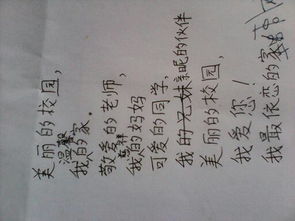 美丽的校园,
温馨
我的家。
敬爱的老师,
慈祥
我的妈妈
可爱的同学,
我的兄妹亲昵的伙伴
美丽的校园,
我爱您!
我最依恋的家